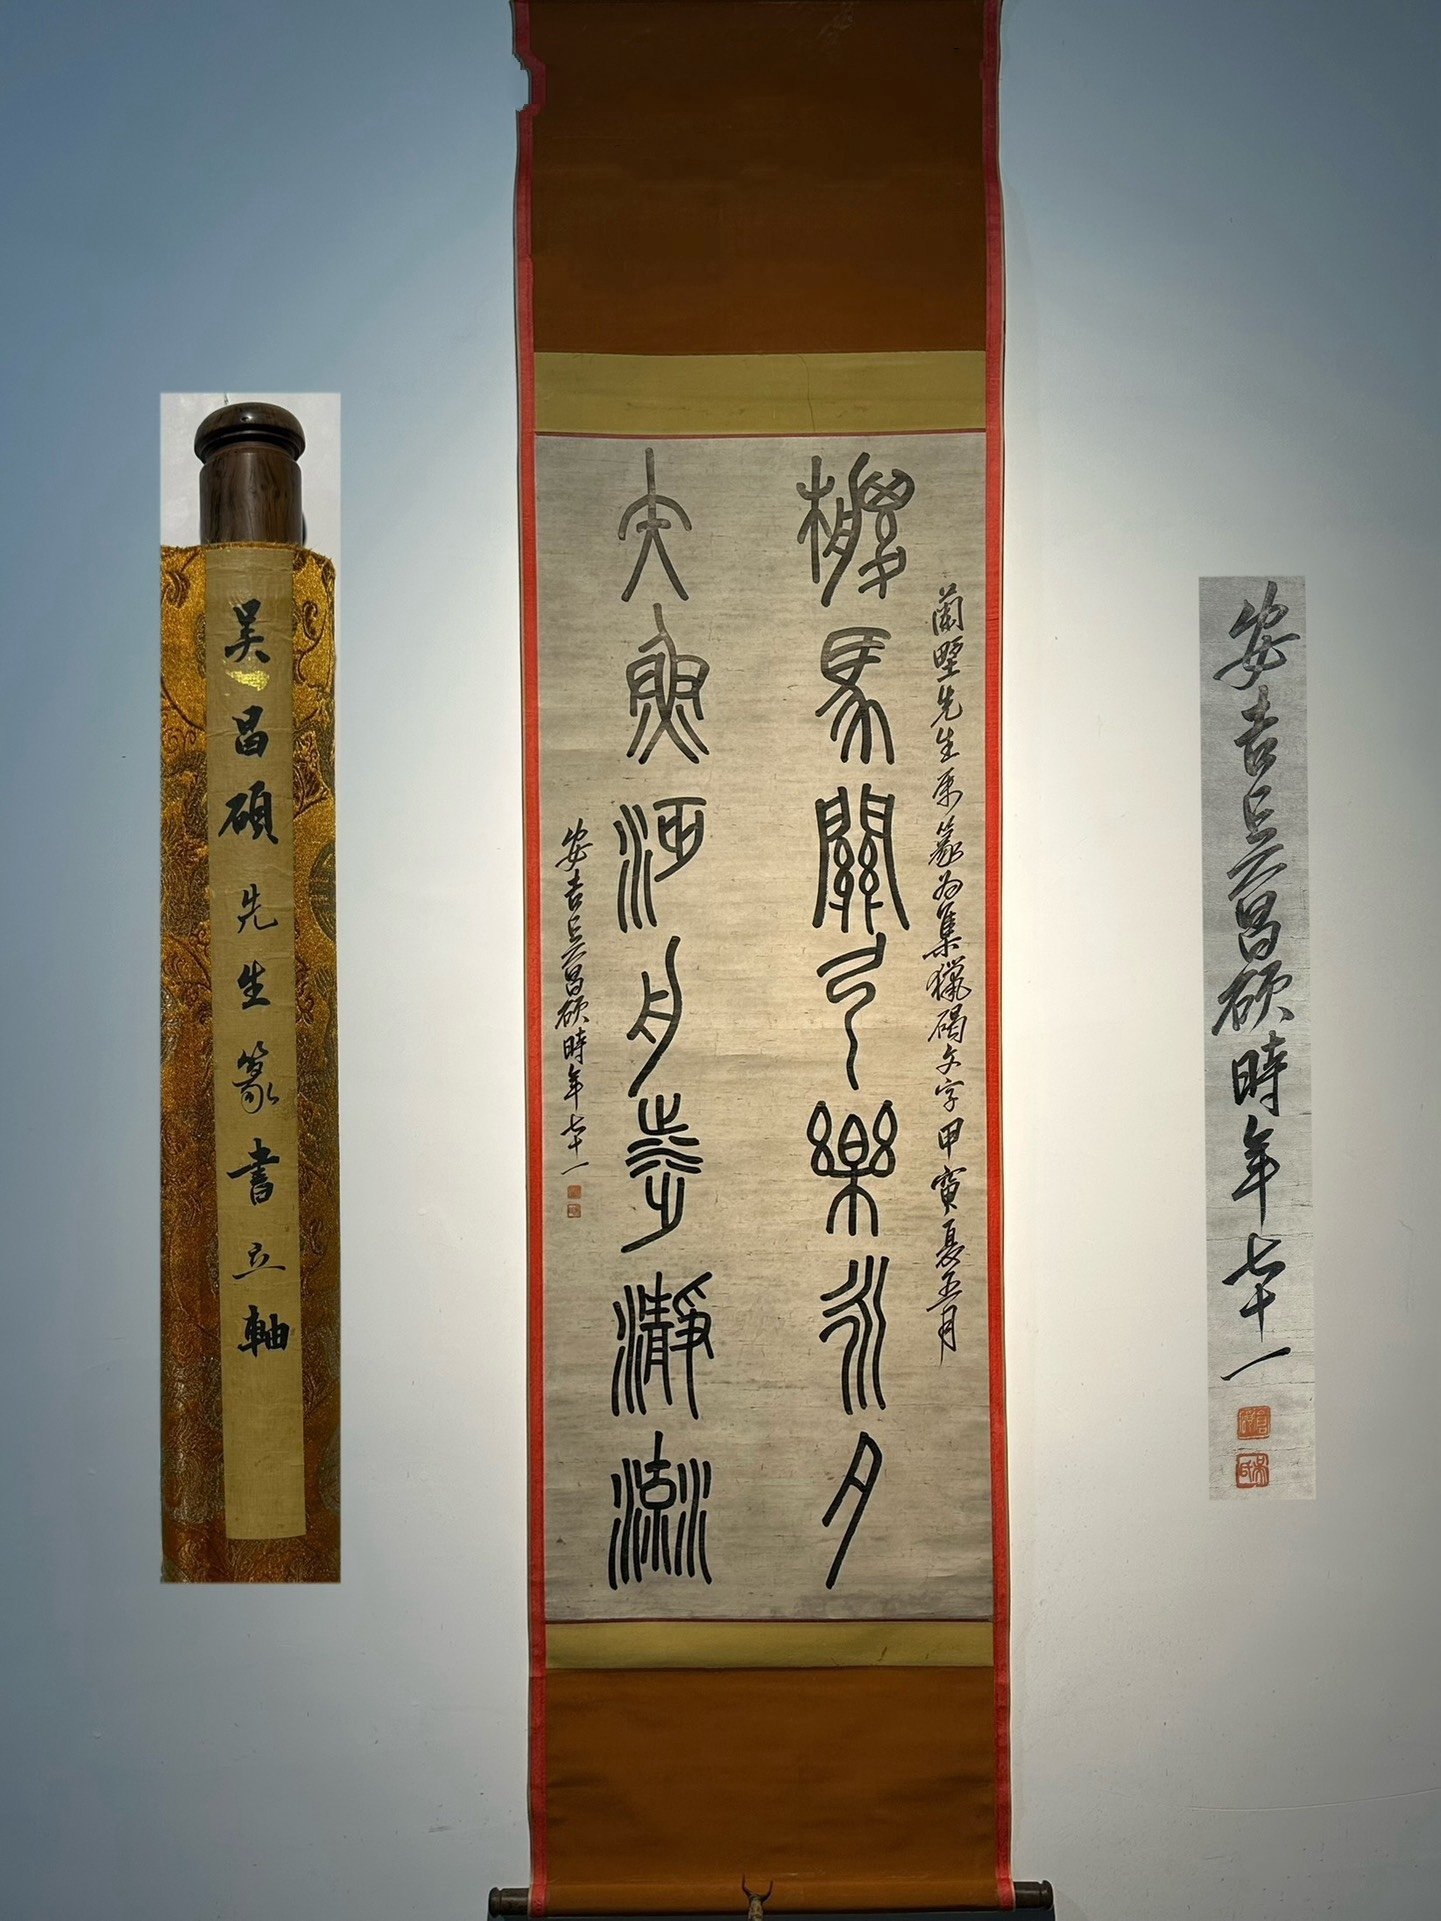 蘭墅先生属篆為集獵碣文字甲寅夏五月
馬關弓樂永夕
矢魚沔舟涉瀞流
安吉吳昌碩時年七十一
吴昌碩先生篆書立軸
安吉吳昌碩時年七十一